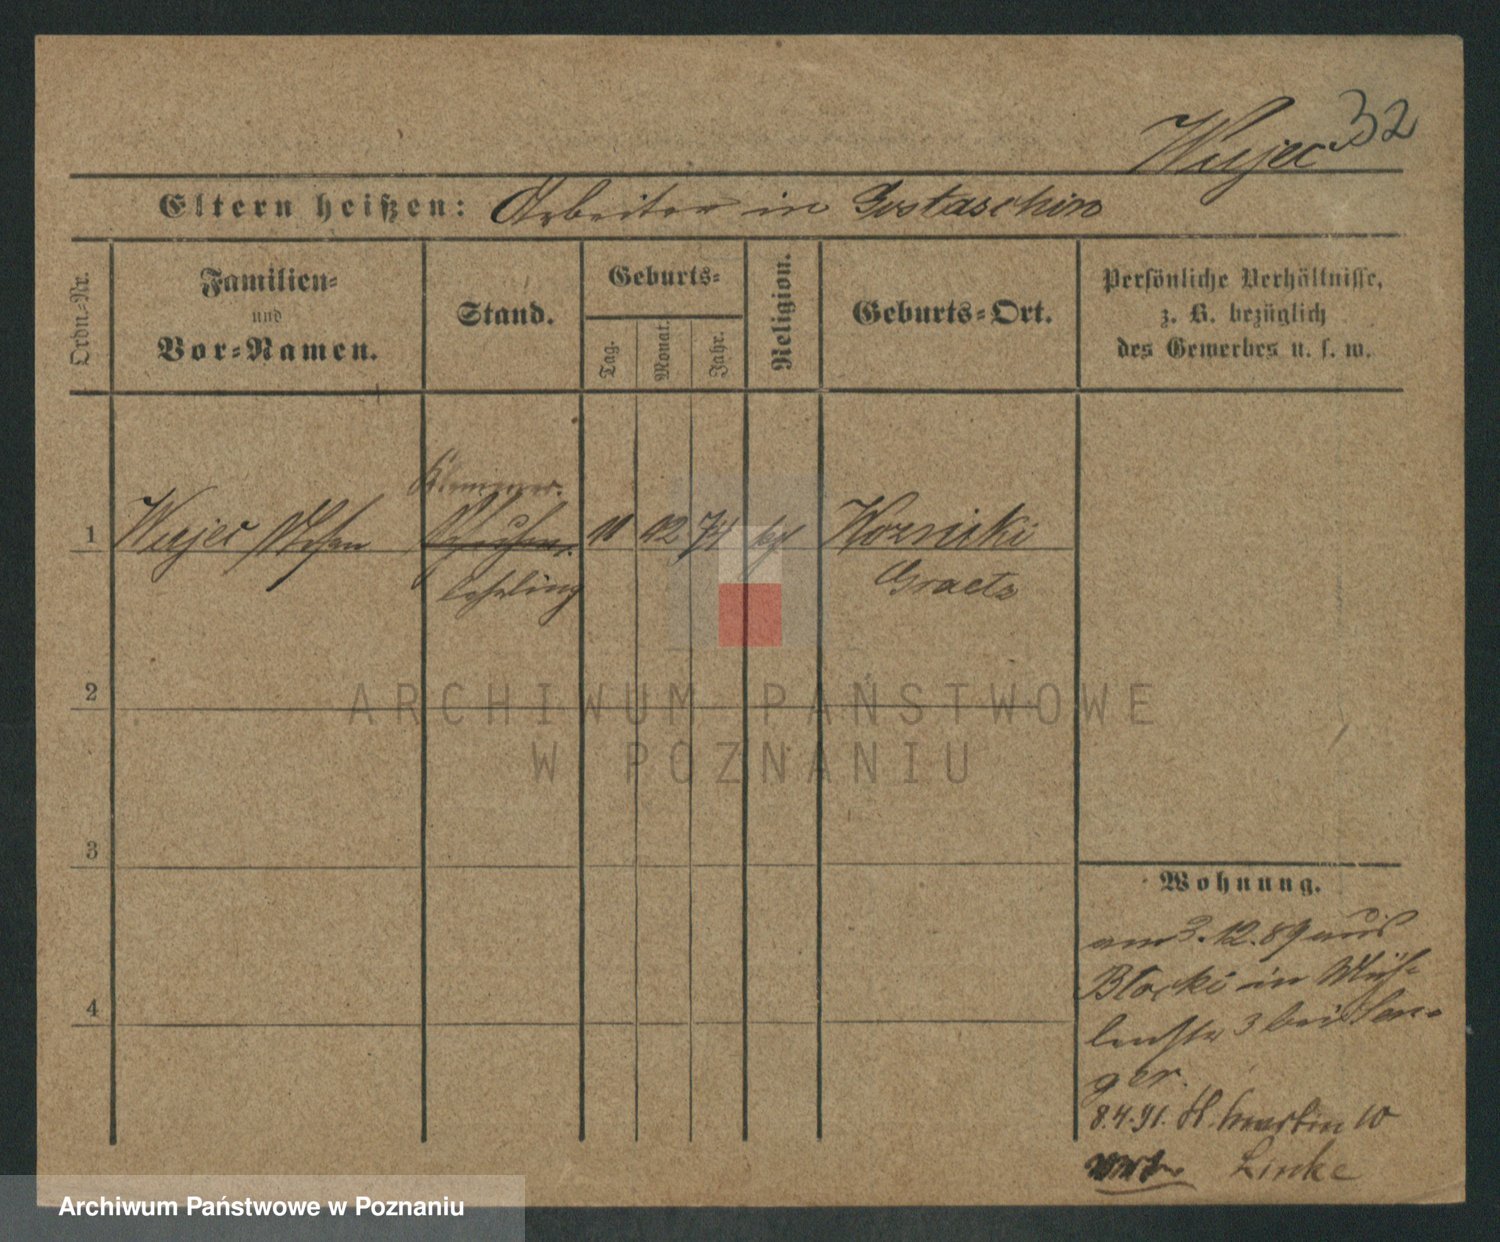 32
Wujec
Eltern heißen: Arbeiter in Gostaschin
Ordn.-Nr.
Familien-
und
Vor-Namen.
Stand.
Geburts-
Tag.
Monat.
Jahr.
Religion.
Geburts-Ort.
Persönliche Verhältnisse,
z. B. bezüglich
des Gewerbes u. s. w.
Klempner.
1 Wujec Stefan 11 12 74 kt Wozniki
lehrling Graetz
2
ARCHIWUM PAŃSTWOWE
W POZNANIU
3
Wohnung.
am 3.12.89 aus
Blocki in Müh-
lenstr 3 bei San-
ger.
4
8.4.91. St. Martin 10
Linke
Archiwum Państwowe w Poznaniu